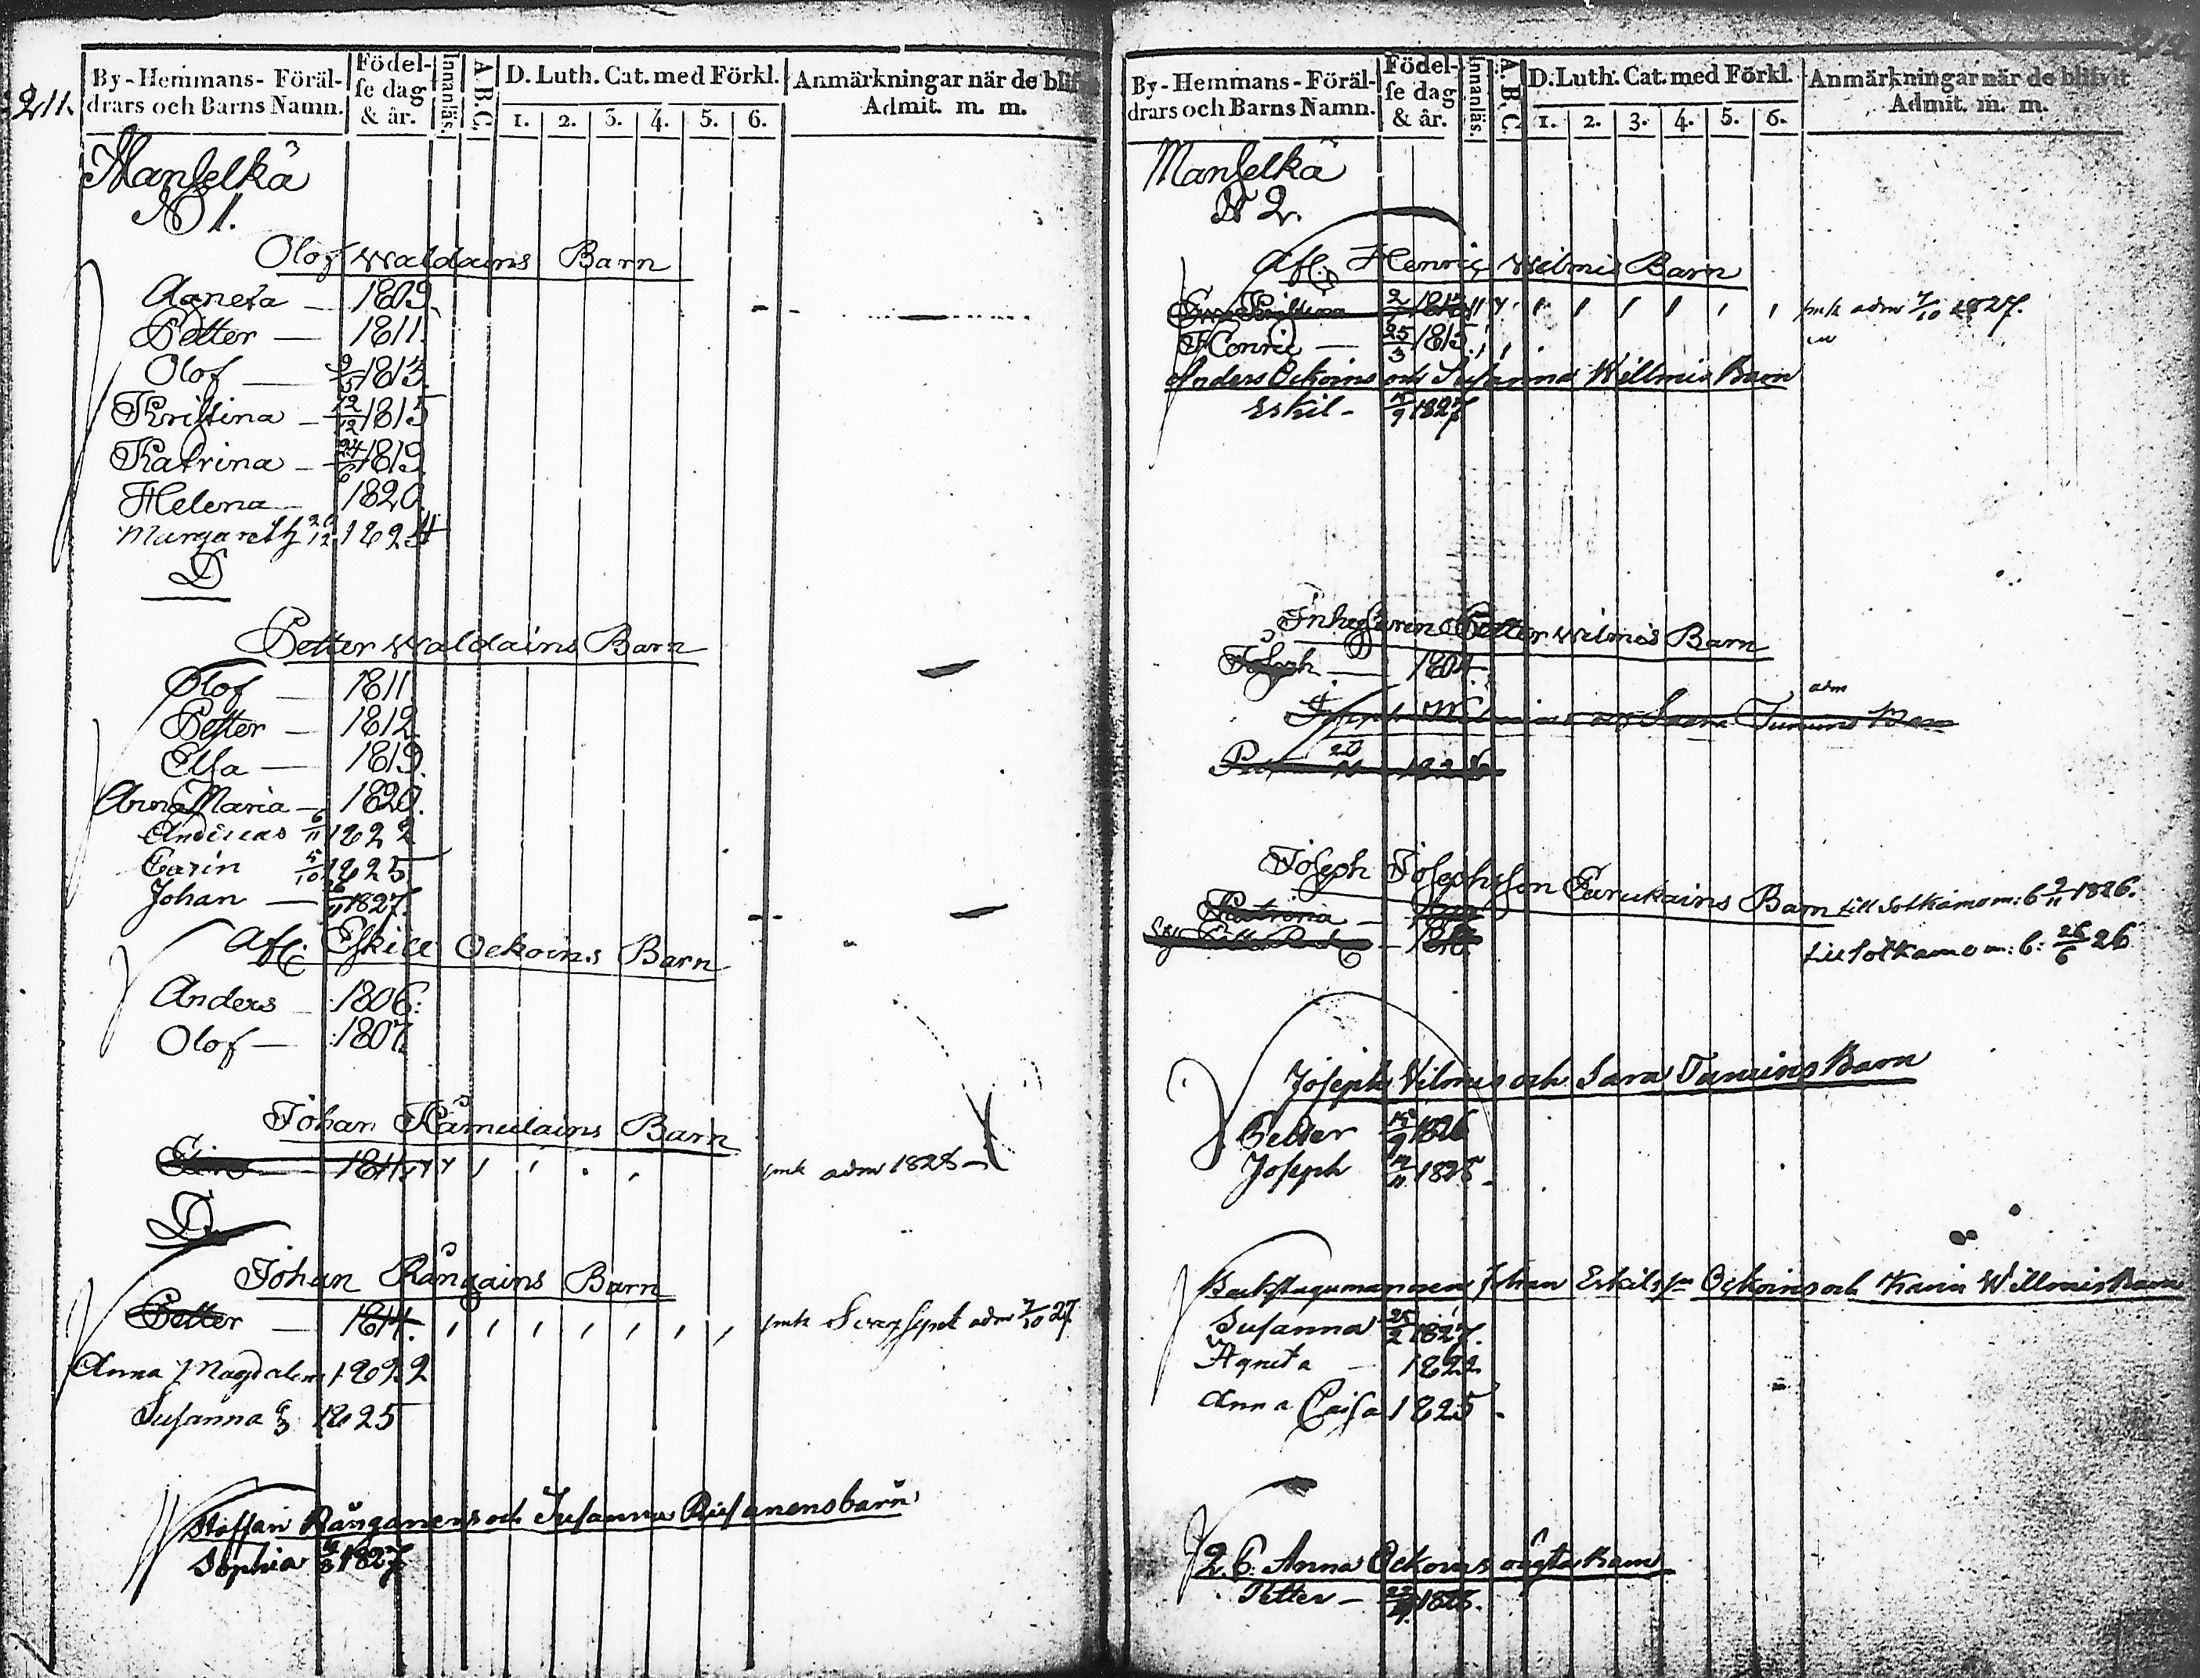 211.
By-Hemmans-Föräl-
drars och Barns Namn.
Födel-
se dag
& år.
Innanläs.
A.B.C.
D. Luth. Cat. med Förkl.
1. 2. 3. 4. 5. 6.
Anmärkningar när de blifvit
Admit. m. m.
Manselkä
N 1.
Olof Waldains Barn
Agneta — 1809.
Petter — 1811.
Olof — 9/5 1813.
Kristina — 12/12 1815
Katrina — 24/6 1819
Helena — 1820.
Margareth 1824
D
Petter Waldains Barn
Olof — 1811.
Petter — 1812.
Elsa — 1819.
Anna Maria — 1820.
Andreas 6/11 1822
Carin 5/10 1825
Johan — 1827.
Afl: Eskill Ockoins Barn
Anders — 1806:
Olof — 1807.
Johan Kämuläins Barn
1811 smk adm 1828
D
Johan Rångains Barn
Petter — 1814. smk Svag synt adm 7/10 27.
Anna Magdalena 1822
Susanna 1825
Staffan Rånganens och Susanna Piisanens barn
Sophia 1827
By-Hemmans-Föräl-
drars och Barns Namn.
Födel-
se dag
& år.
Innanläs.
A.B.C.
D. Luth. Cat. med Förkl.
1. 2. 3. 4. 5. 6.
Anmärkningar när de blifvit
Admit. m. m.
Manselkä
N 2.
Afl: Henric Wilmis Barn
smk adm 7/10 1827.
Henric — 25/3 1815.
Anders Ockoins och Susanna Willmis Barn
Eskil — 1827
Inhyssaren Petter Wilmis Barn
Joseph — 1804.
adm
Joseph Josephsson Karukains Barn till Sotkamo m: b 9/11 1826.
Katrina —
till Sotkamo m: b: 26/6 26
Joseph Vilmis och Sara Tunins Barn
Petter 1826
Joseph 1828
Backstugumannen Johan Eskilsson Ockoins och Karin Willmis Barn
Susanna 25/2 1827.
Agneta — 1822
Anna Caisa 1825
Q.P. Anna Ockoins oägta Barn
Petter — 1828.